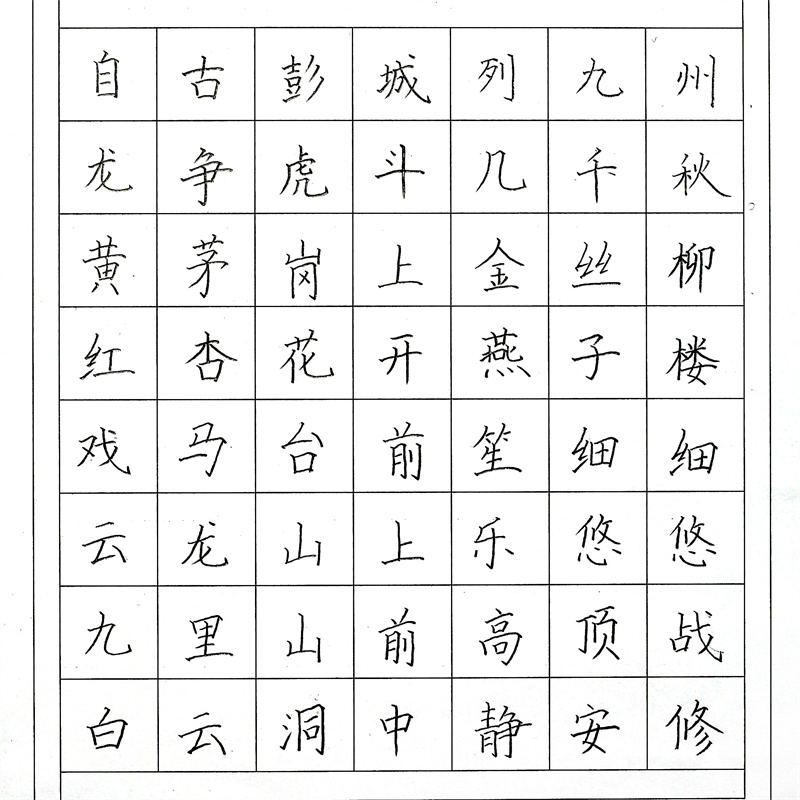 自古彭城列九州
龙争虎斗几千秋
黄茅岗上金丝柳
红杏花开燕子楼
戏马台前笙细细
云龙山上乐悠悠
九里山前高顶战
白云洞中静安修